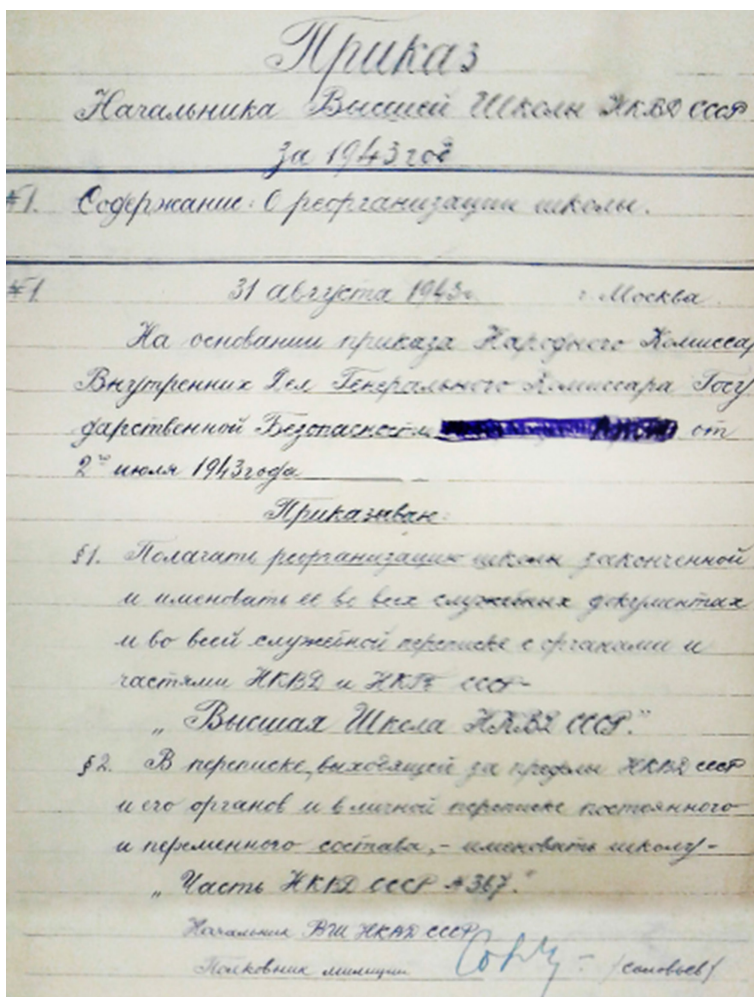 Приказ
Начальника Высшей Школы НКВД СССР
за 1943 год
№1. Содержание: О реорганизации школы.
№1 31 августа 1943г. г. Москва.
На основании приказа Народного Комиссар
Внутренних Дел Генерального Комиссара Госу
дарственной Безопасности от
2го июля 1943 года
Приказываю:
§1. Полагать реорганизацию школы законченной
и именовать ее во всех служебных документах
и во всей служебной переписке с органами и
частями НКВД и НКГБ СССР –
„Высшая Школа НКВД СССР."
§2. В переписке, выходящей за пределы НКВД СССР
и его органов и в личной переписке постоянного
и переменного состава, – именовать школу –
„Часть НКВД СССР №367."
Начальник ВШ НКВД СССР
Полковник милиции – /Соловьев/